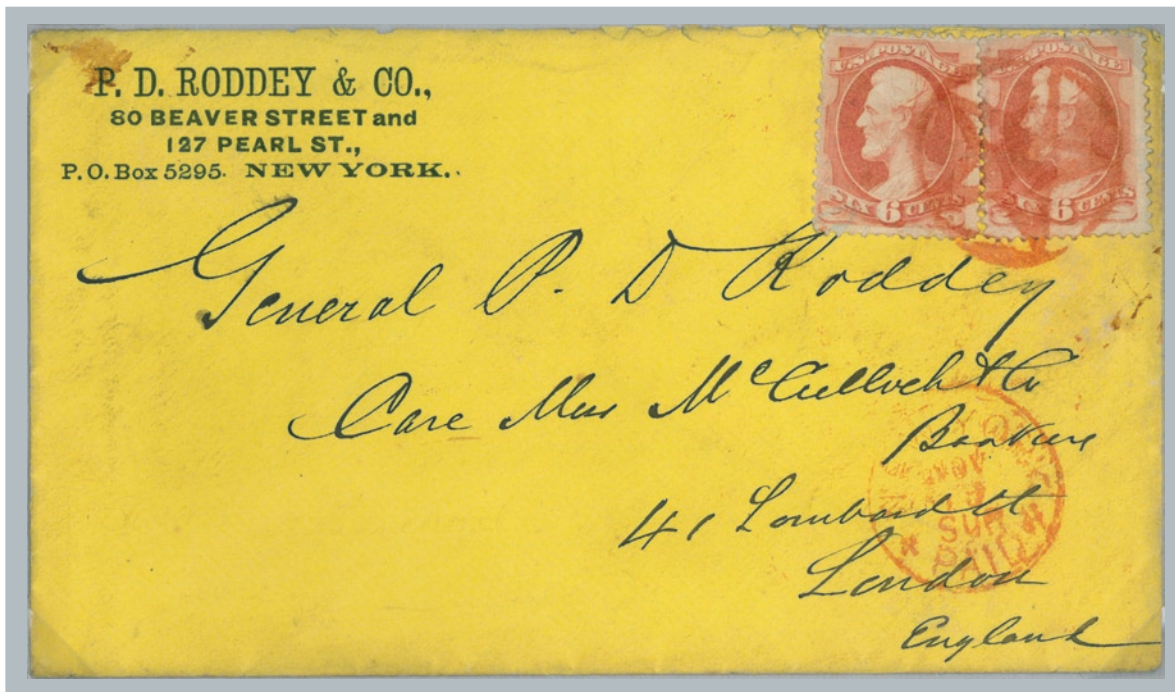 P. D. RODDEY & CO.,
80 BEAVER STREET and
127 PEARL ST.,
P.O. Box 5295. NEW YORK.
U.S. POSTAGE
SIX 6 CENTS
POSTAGE
SIX 6 CENTS
General P. D Roddey
Care Mess McCulloch & Co
Bankers
41 Lombard St
London
England
PAID